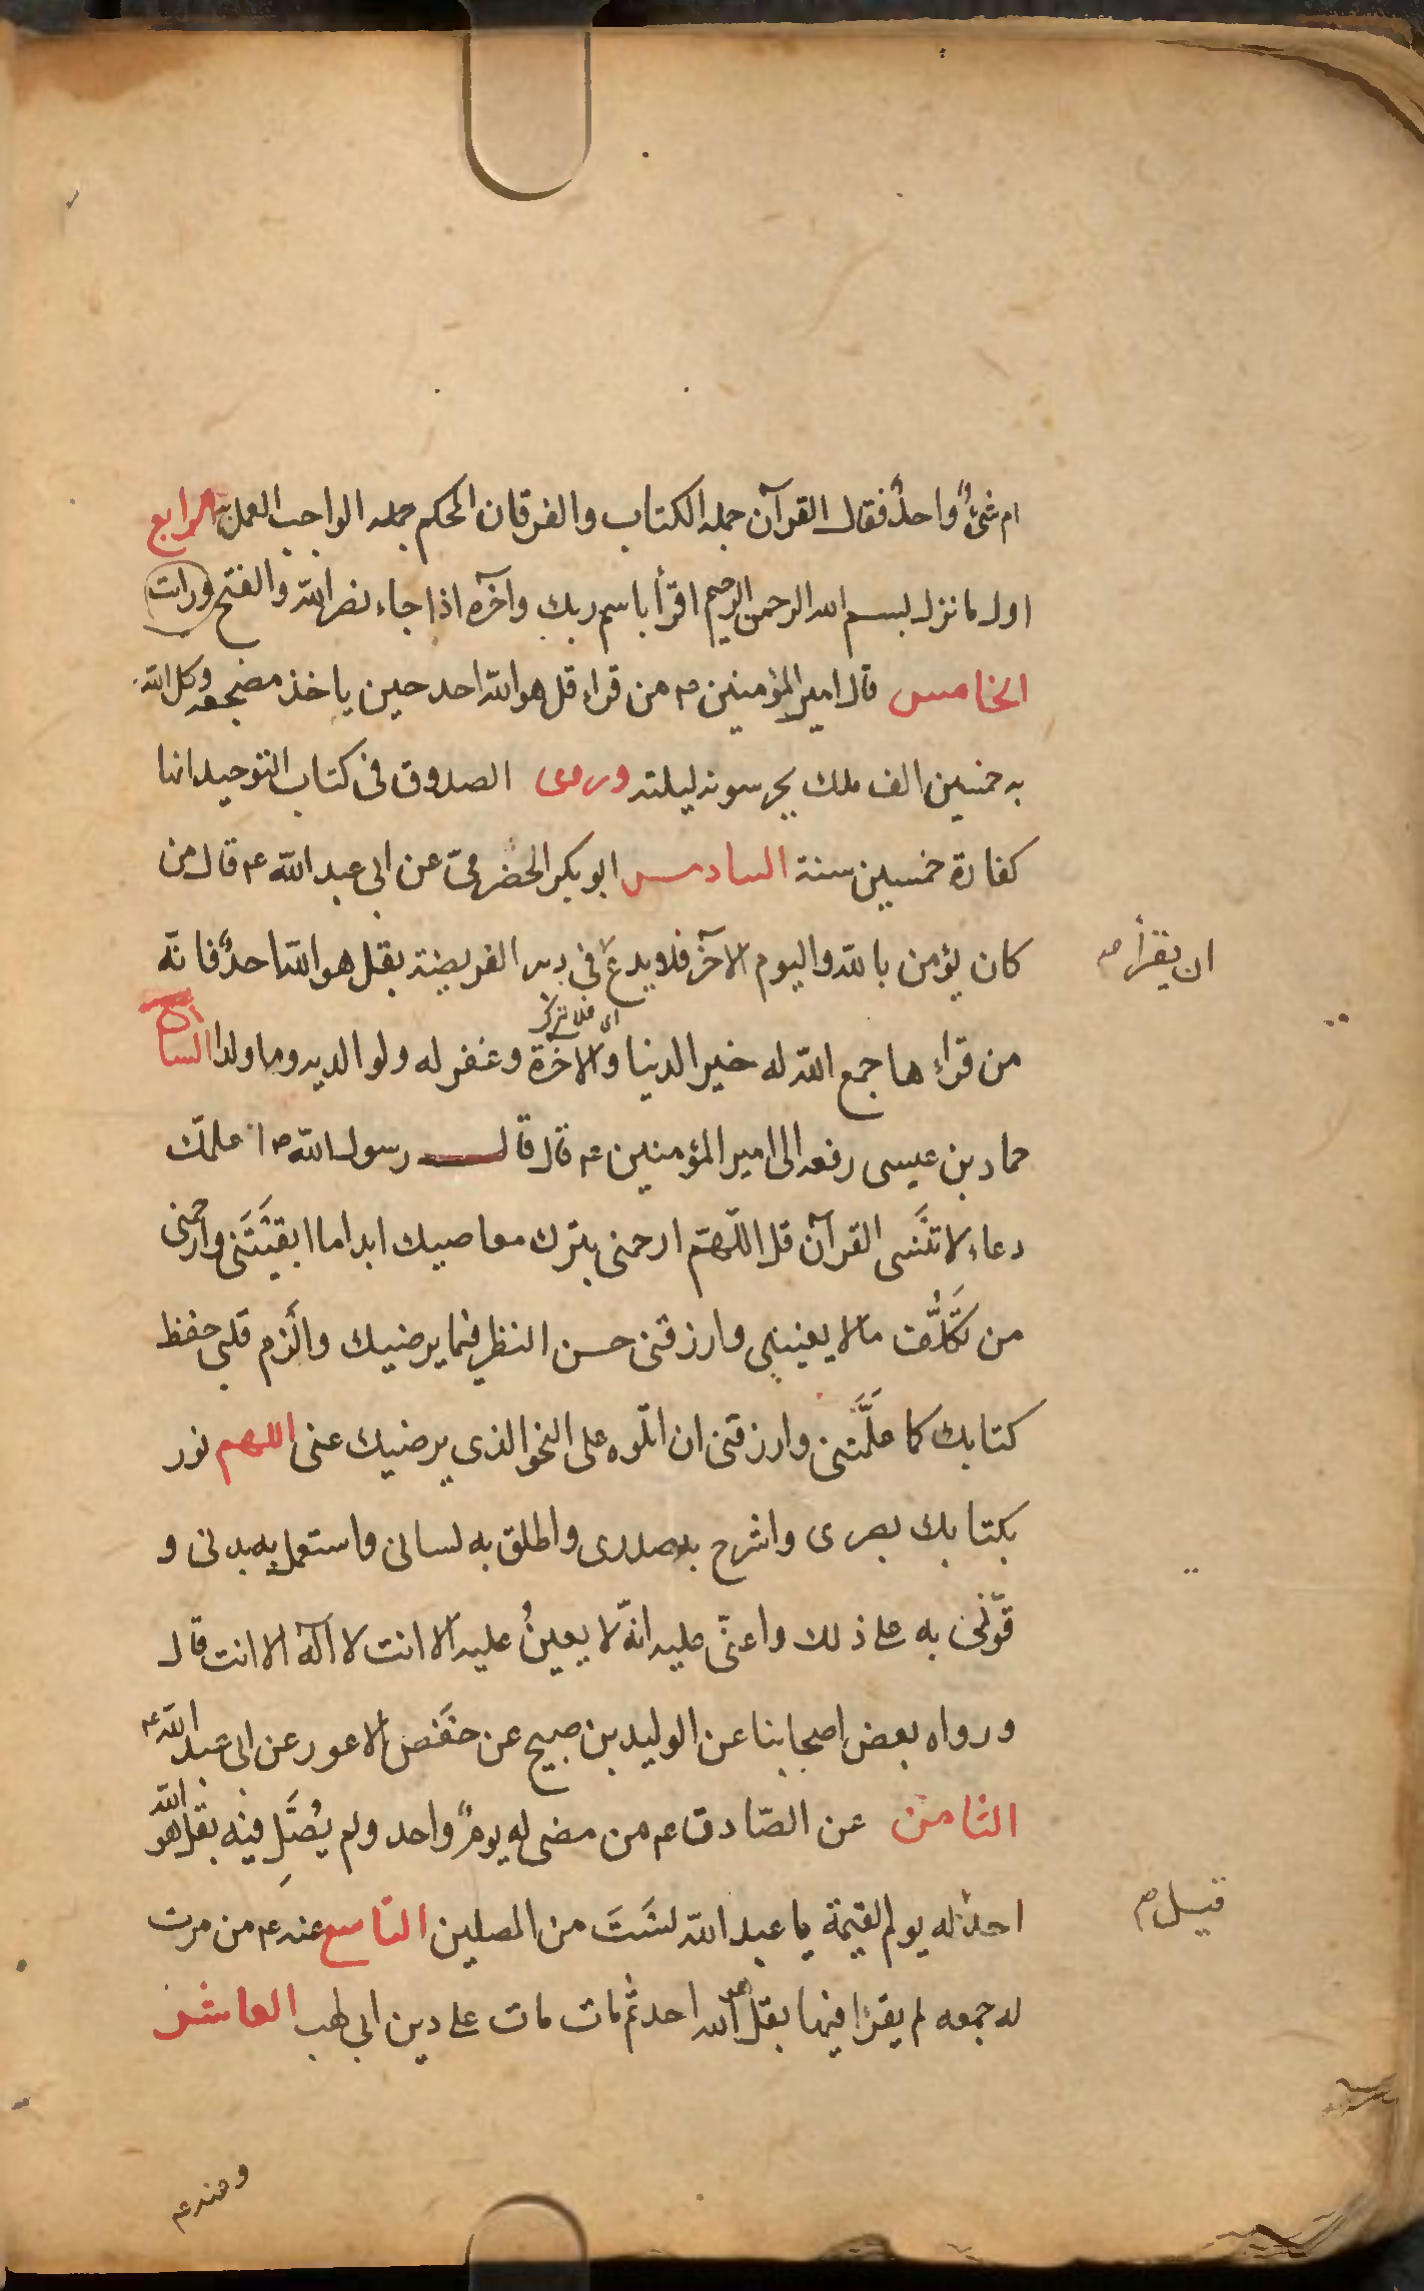 ام شيءٌ واحدٌ فقال القرآن جمله الكتاب والفرقان المحكم جمله الواجب العمل به الرابع
اول ما نزل بسم الله الرحمن الرحيم اقرأ باسم ربك وآخره اذا جاء نصر الله والفتح ورات
الخامس قال امير المؤمنين ع من قراء قل هو الله احد حين ياخذ مضجعه وكل الله
به خمسين الف ملك يحرسونه ليلته وروى الصدوق فى كتاب التوحيد انها
كفارة خمسين سنة السادس ابو بكر الحضرمىّ عن ابى عبد الله ع قال من
كان يؤمن بالله واليوم الآخر فلا يدع فى دبر الفريضة بقل هو الله احدٌ فانّه
ان يقرأ ص
اى فلا يترك
من قراءها جمع الله له خير الدنيا والآخرة وغفر له ولوالديه وما ولدا السابع
حماد بن عيسى رفعه الى امير المؤمنين ع قال قال رسول الله ص اعلمّك
دعاء لا تنَسى القرآن قل اللّهمّ ارحمنى بترك معاصيك ابدا ما ابقيَتَنى وارحمنى
من تَكَلُّف ما لا يعنينى وارزقنى حسن النظر فيما يرضيك والَزم قلبى حفظ
كتابك كما علَّمَتنى وارزقنى ان اتلوه على النحو الذى يرضيك عنى اللهم نور
بكتابك بصرى واشرح به صدرى واطلق به لسانى واستعمل به بدنى و
قوّنى به على ذلك واعنّى عليه انّه لا يعينُ عليه الا انت لا اله الا انت قال
ورواه بعض اصحابنا عن الوليد بن صبيح عن حفَص الاعور عن ابى عبد الله ع
الثامن عن الصّادق ع من مضى له يومٌ واحد ولم يُصَلِّ فيه بقل هو الله
احدٌ له يوم القيمة يا عبد الله لسَتَ من المصلين التاسع عنه ع من مرت
قيل ص
له جمعه لم يقرا فيها بقل هو الله احد ثم مات مات على دين ابى لهب العاشر
وعنه ع